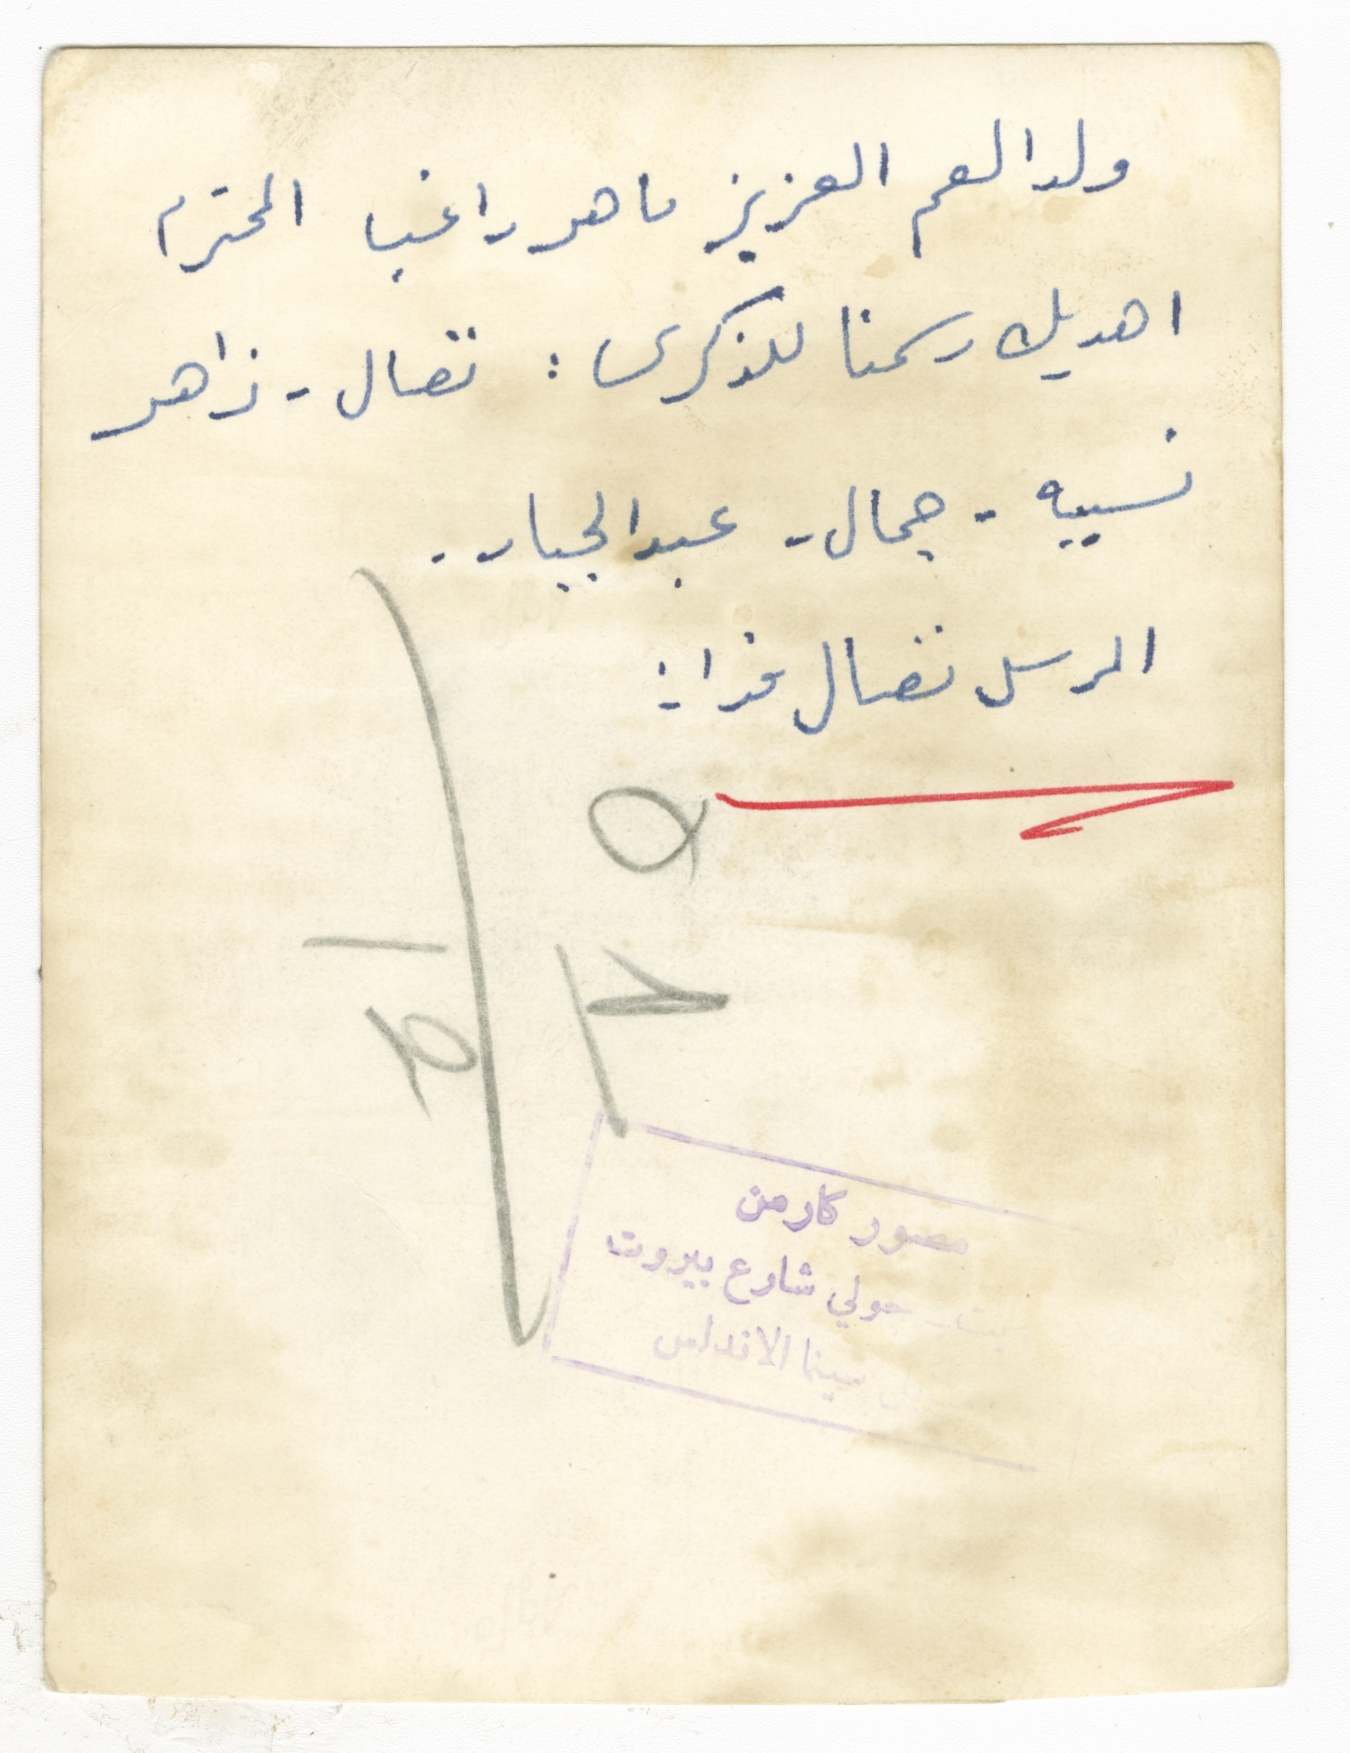 ولد العم العزيز ماهر راغب المحترم
اهديك رسمنا للذكرى : نضال - زاهر
نسيبه - جمال - عبد الجبار -
المرسل نضال
مصور كارمن
حولي شارع بيروت
سينما الاندلس